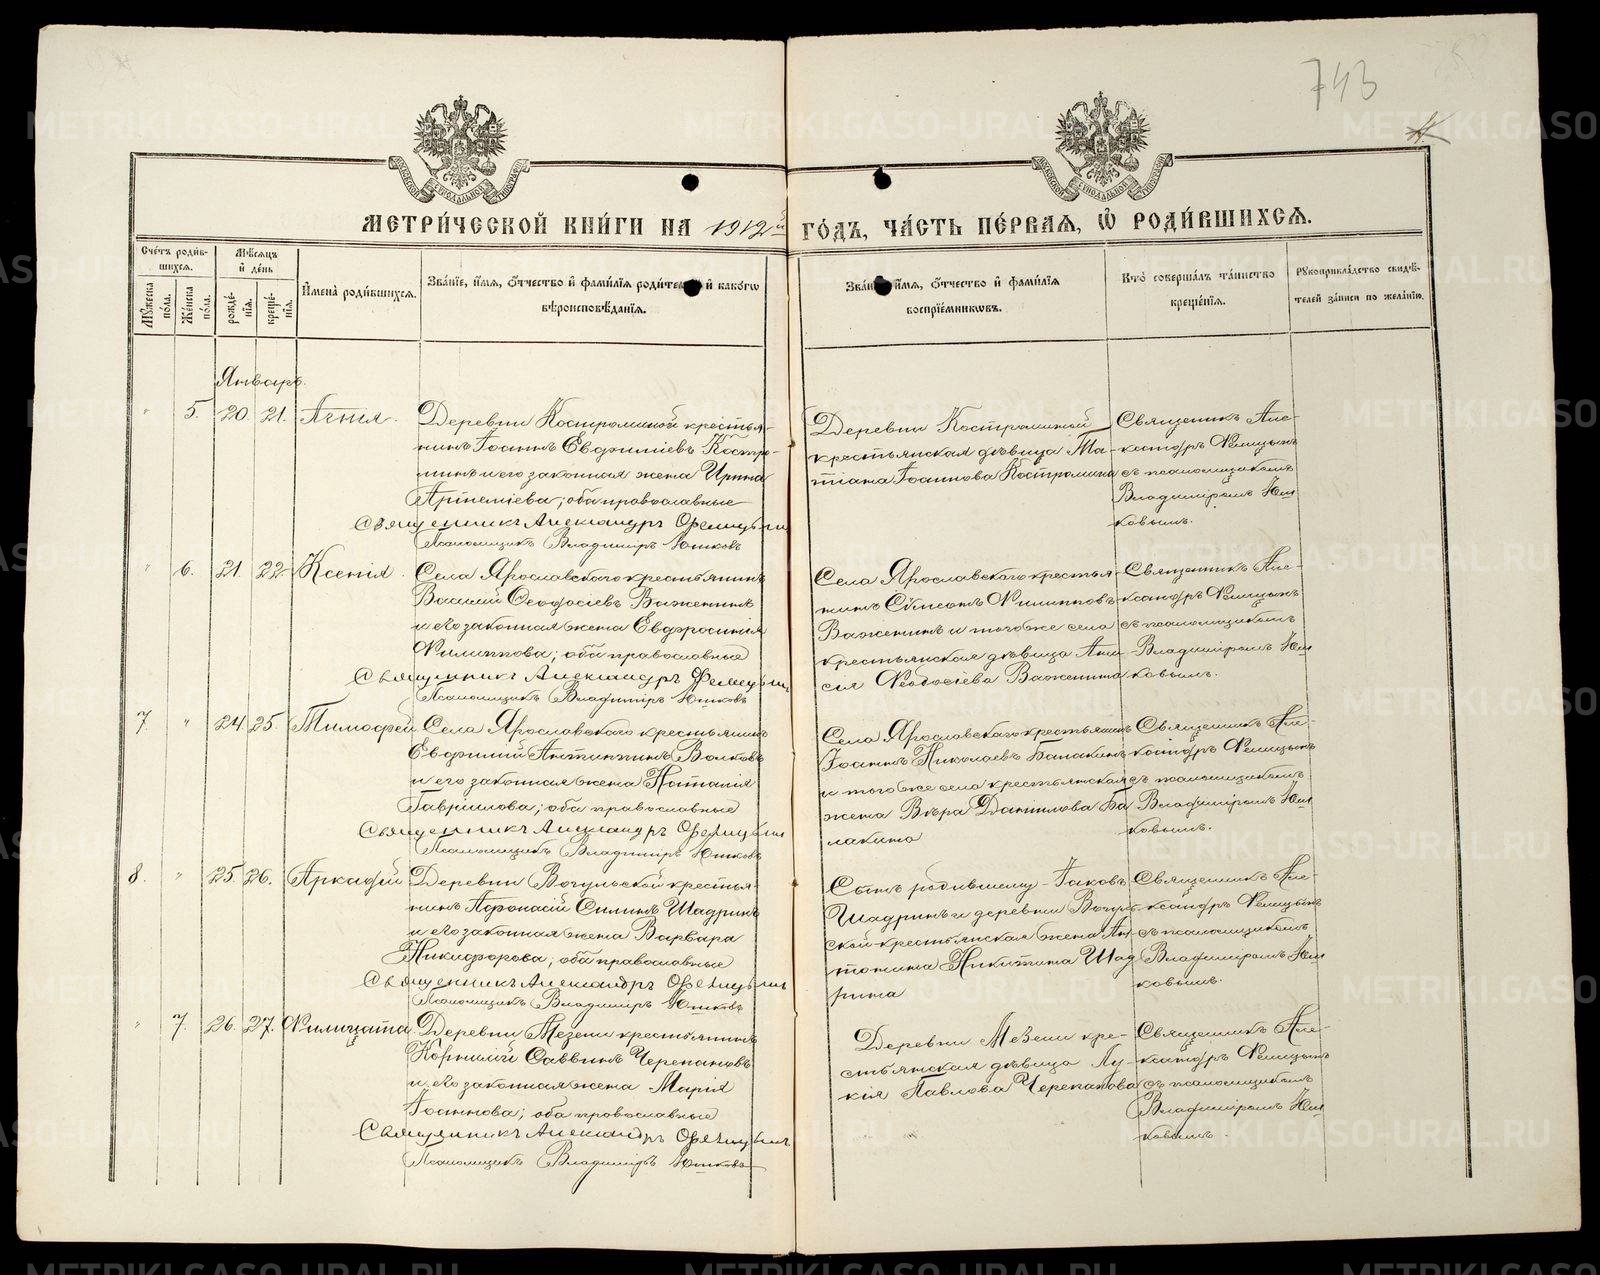 743
МЕТРИ́ЧЕСКОЙ КНИ́ГИ НА 1912й ГО́ДЪ, ЧА́СТЬ ПЕ́РВАЯ, Ѡ РОДИ́ВШИХСЯ.
Сче́тъ роди́в-
шихся.
Мꙋ́жеска по́ла.
Же́нска по́ла.
Мѣ́сяцъ
и де́нь
рожде́нїя.
креще́нїя.
И̓мена̀ роди́вшихся.
Зва́нїе, и́мя, о́тчество и фами́лїя роди́телей и како́гѡ
вѣроисповѣ́данїя.
Зва́нїе, и́мя, о́тчество и фами́лїя
воспрїе́мникѡвъ.
Кто̀ соверша́лъ та́инство
креще́нїя.
Рꙋкоприкла́дство свидѣ́-
телей за́писи по жела́нїю.
Январь.
" 5. 20 21. Агнія.
Деревни Костроминой крестья-
нинъ Іоаннъ Евфиміевъ Костро-
минъ и его законная жена Ирина
Артемиева; оба православные
Священникъ Александръ
Псаломщикъ Владиміръ Юшковъ
Деревни Костроминой
крестьянская дѣвица Та-
тіана Іоаннова Костромина
Священникъ Але-
ксандръ
съ псаломщикомъ
Владиміромъ Юш
ковымъ.
" 6. 21. 22. Ксенія.
Села Ярославского крестьянинъ
Василій Ѳеодосіевъ Важенинъ
и его законная жена Евфросинія
Филиппова; оба православные
Священникъ Александръ
Псаломщикъ Владиміръ Юшковъ
Села Ярославского крестья-
нинъ Сѵмеонъ Филипповъ
Важенинъ и того же села
крестьянская дѣвица Ани
сія Феодосіева Важенина
Священникъ Але-
ксандръ
съ псаломщикомъ
Владиміромъ Юш
ковымъ.
7. " 24 25 Тимофей
Села Ярославского крестьянинъ
Евфимій Волковъ
и его законная жена Наталія
Гавриилова; оба православные
Священникъ Александръ
Псаломщикъ Владиміръ Юшковъ
Села Ярославского крестьянинъ
Іоаннъ Николаевъ Балакинъ
и того же села крестьянская
жена Вѣра Даниилова Ба
лакина
Священникъ Але-
ксандръ
съ псаломщикомъ
Владиміромъ Юш
ковымъ.
8. " 25. 26. Аркадій
Деревни Вогульской крестья-
нинъ Афонасій Силинъ Шадринъ
и его законная жена Варвара
Никифорова; оба православные
Священникъ Александръ
Псаломщикъ Владиміръ Юшковъ
Сынъ родившему Іаковъ
Шадринъ и деревни Вогуль-
ской крестьянская жена Ан
тонина Никитина Шад
рина
Священникъ Але-
ксандръ
съ псаломщикомъ
Владиміромъ Юш
ковымъ.
" 7. 26. 27. Филицата
Деревни Мезени крестьянинъ
Корнилій Саввинъ Черепановъ
и его законная жена Марія
Іоаннова; оба православные
Священникъ Александръ
Псаломщикъ Владиміръ Юшковъ
Деревни Мезени кре-
стьянская дѣвица Лу-
кія Павлова Черепанова
Священникъ Але-
ксандръ
съ псаломщикомъ
Владиміромъ Юш
ковымъ.
METRIKI.GASO-URAL.RU